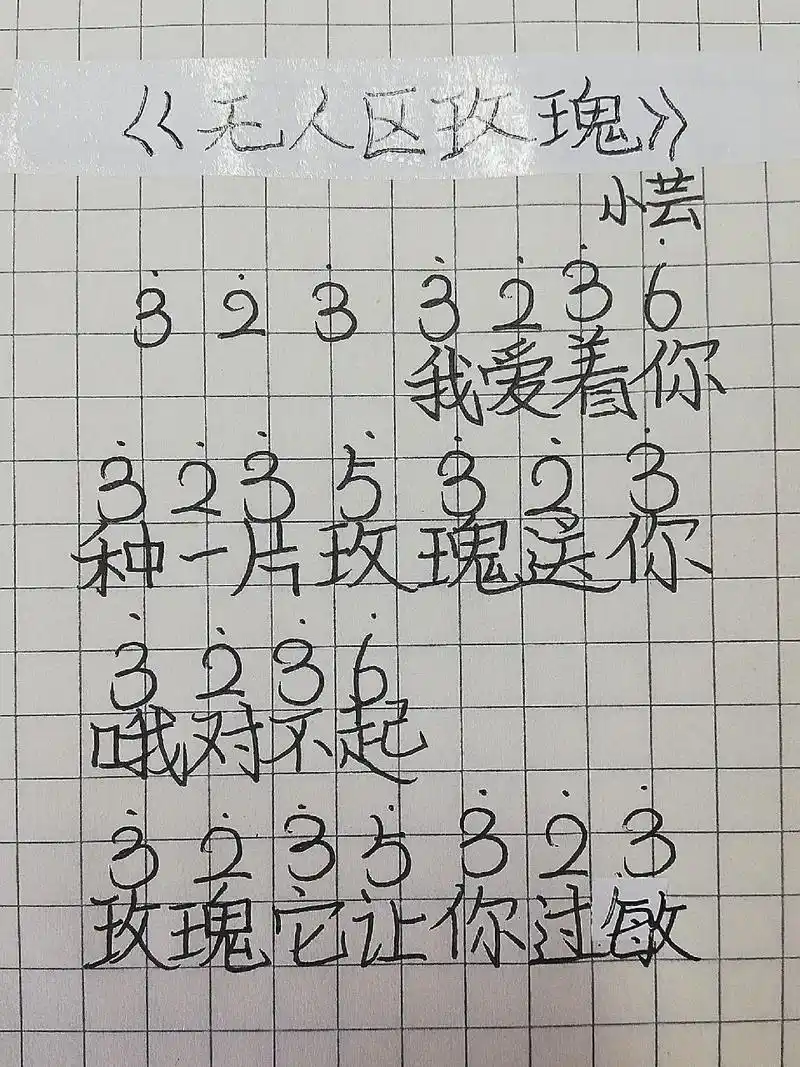 《无人区玫瑰》
小芸
3̇ 2̇ 3̇ 3̇ 2̇ 3̇ 6̇
我爱着你
3̇ 2̇ 3̇ 5̇ 3̇ 2̇ 3̇
种一片玫瑰送你
3̇ 2̇ 3̇ 6̇
哦对不起
3̇ 2̇ 3̇ 5̇ 3̇ 2̇ 3̇
玫瑰它让你过敏